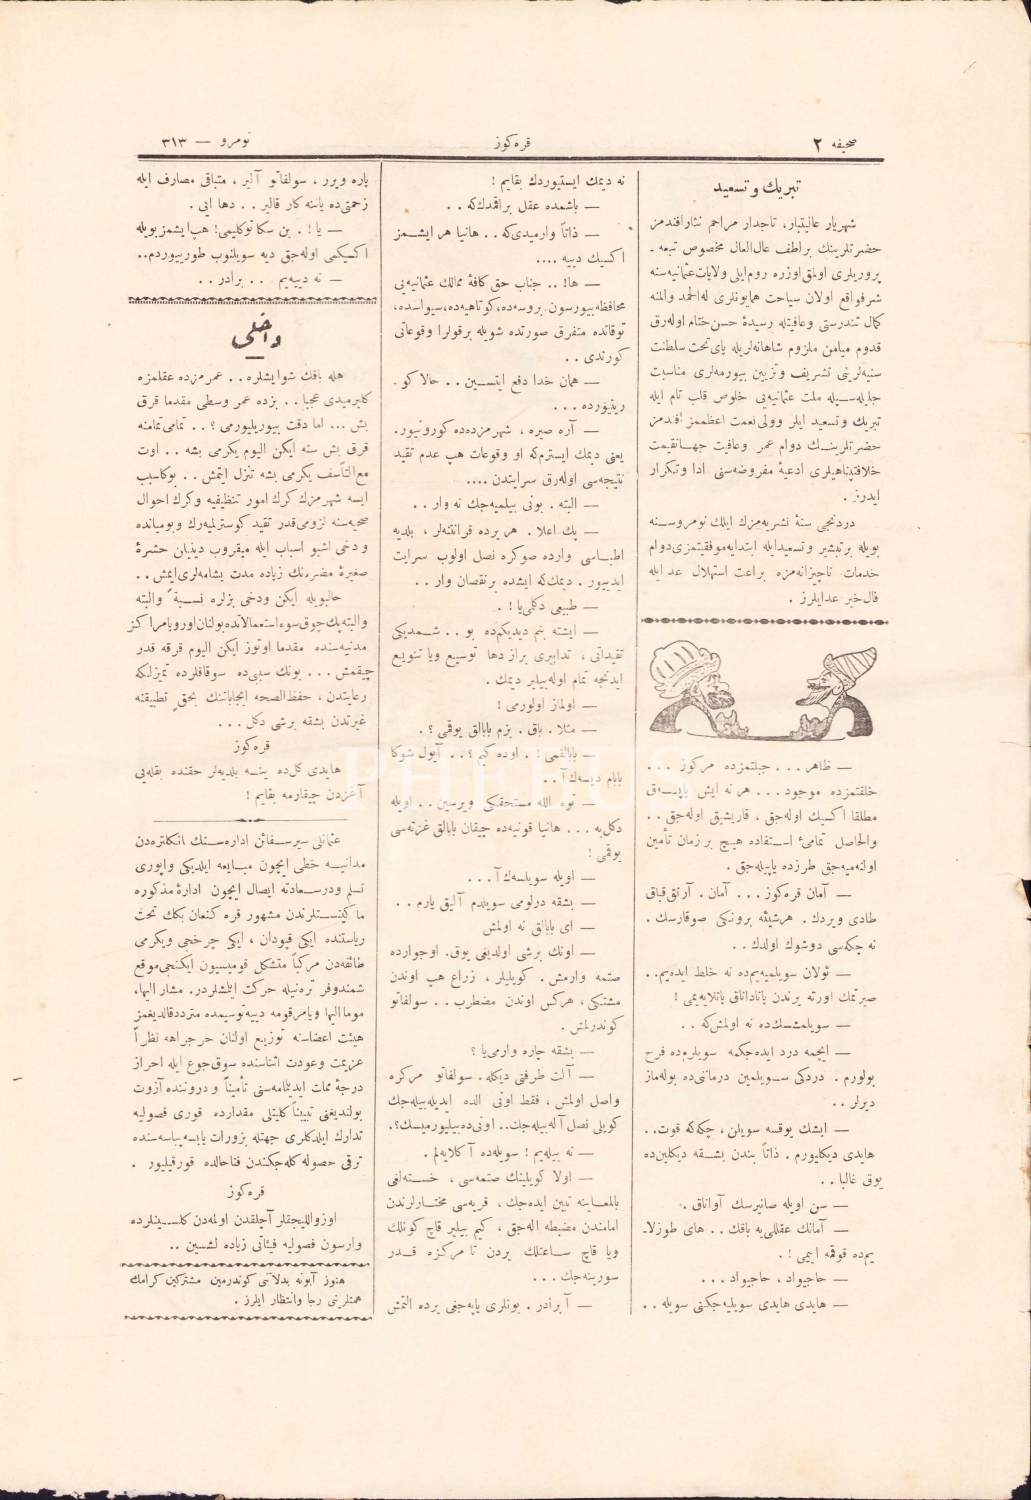 صحيفه ٢
قره كوز
نومرو — ٣١٣
تبريك و تسعيد
شهريار عاليتبار، تاجدار مراحم نثار افندمز
حضرتلرينك بر اطف عال العال مخصوص تبعه ـ
پروريلرى اولمق اوزره روم ايلى ولايات عثمانيه سنه
شرفواقع اولان سياحت همايونلرى له الحمد والمنه
كمال تندرستى وعافيتله رسيدهٔ حسن ختام اوله رق
قدوم ميامن ملزوم شاهانه لريله پاى تحت سلطنت
سنيه لرينى تشريف و تزيين بيورمه لرى مناسبت
جليله سيله ملت عثمانيه يى خلوص قلب تام ايله
تبريك و تسعيد ايلر وولى نعمت اعظممز افندمز
حضرتلرينك دوام عمر وعافيت جهانقيمت
خلافتپناهيلرى ادعيهٔ مفروضه سنى ادا و تكرار
ايدرز .
دردنجى سنهٔ نشريه مزك ايلك نومروسنه
بويله بر تبشير و تسعيد ايله ابتدايه موفقيتمزى دوام
خدمات ناچيزانه مزه براعت استهلال عد ايله
فال خير عد ايلرز .
— ظاهر ... جبلتمزده مركوز ...
خلقتمزده موجود ... هر نه ايش ياپسه ق
مطلقا اكسيك اوله جق ، قاريشيق اوله جق ..
والحاصل تمامىٔ استفاده هيچ بر زمان تأمين
اولنه ميه جق طرزده ياپيله جق .
— آمان قره كوز ... آمان . آرتق قباق
طادى ويردك . هر شيئه برونكى صوقارسك .
نه چكه سى دوشوك اولدك ..
— ئولان سويلميه يم ده نه خلط ايده يم..
صبر تمك اورته يرندن ياتاداناق ياتلايه يمى !
— سويلمشسك ده نه اولمش كه ..
— ايچمه درد ايده جكمه سويلرم ده فرح
بولورم . دردكى سويلمين درمانى ده بوله ماز
ديرلر ..
— ايشك يوقسه سويلن ، چكه كه قوت..
هايدى ديكليورم . ذاتاً بندن بشقه ديكلين ده
يوق غالبا ..
— سن اويله صانيرسك آواناق .
— آمانك عقللى يه باقك .. هاى طوزلاـ
يم ده قوقمه ايمى ! .
— حاجيواد ، حاجيواد ...
— هايدى هايدى سويليه جكنى سويله ..
نه ديمك ايستيوردك بقايم !
— باشمده عقل براقمدك كه ..
— ذاتاً وارميدى كه .. هانيا هر ايشمز
اكسيك دييه ....
— ها! .. جناب حق كافهٔ ممالك عثمانيه يى
محافظه بيورسون. بروسه ده، كوتاهيه ده، سيواسده،
توقاتده متفرق صورتده شويله بر قولرا وقوعاتى
كورندى ..
— همان خدا دفع ايتسين .. حالا كو.
رينيورده ...
— آره صيره ، شهرمزده ده كورونيور.
يعنى ديمك ايسترم كه او وقوعات هپ عدم تقيد
نتيجه سى اوله رق سرايتدن ....
— البته . بونى بيلميه جك نه وار ..
— پك اعلا . هر يرده قرانتنه لر ، بلديه
اطباسى وارده صوكره نصل اولوب سرايت
ايديیور . ديمك كه ايشده بر نقصان وار ..
— طبيعى دكلى يا ! .
— ايشته بنم ديديكم ده بو .. شمديكى
تقيداتى ، تدابيرى براز دها توسيع ويا تنويع
ايدنجه تمام اوله بيلير ديمك .
— اولماز اولورمى !
— مثلا . باق . بزم بابالق يوقمى ؟ .
— بابالقمى ! . اوده كيم ؟ .. آيول شوكا
بابام ديسه ك آ ..
— توه الله مستحقيكى ويرسين .. اويله
دكل به ... هانيا قونيه ده چيقان بابالق غزته سى
يوقمى !
— اويله سويلسه ك آ ...
— بشقه درلومى سويلدم آليق يارم ..
— اى بابالق نه اولمش
— اونك برشى اولديغى يوق. اوجوارده
صتمه وارمش . كويليلر ، زراع هپ اوندن
مشتكى ، هركس اوندن مضطرب .. سولفاتو
كوندرلمش .
— بشقه چاره وارمى يا ؟
— آلت طرفنى ديكله . سولفاتو مركزه
واصل اولمش ، فقط اونى الده ايديله بيله جك
كويلى نصل آله بيله جك.. اونى ده بيليورميسك؟.
— نه بيله يم ! سويله ده آكلايه لم .
— اولا كويلينك صتمه سى ، خسته لغى
بالمعاينه تبين ايده جك ، قريه سى مختارلرندن
امامندن مضبطه اله جق ، كيم بيلير قاچ كونلك
ويا قاچ ساعتلك يردن تا مركزه قدر
سورينه جك ...
— آ برادر . بونلرى ياپه جغى يرده التمش
پاره ويرر ، سولفاتو آلير ، متباقى مصارف ايله
زحمتى ده ياننه كار قالير .. دها ايى .
— يا ! . بن سكا نوكليمى! هپ ايشمز بويله
اكسيكمى اوله جق ديه سويلنوب طوريیوردم..
— نه دييه يم ... برادر ..
داخلى
هله باقك شو ايشلره .. عمرمزده عقلمزه
كليرميدى عجبا .. بزده عمر وسطى مقدما قرق
بش ... اما دقت بيوريليورمى ؟ .. تمامى تمامنه
قرق بش سنه ايكن اليوم يكرمى بشه .. اوت
مع التأسف يكرمى بشه تنزل ايتمش .. بوكاسبب
ايسه شهرمزك كرك امور تنظيفيه وكرك احوال
صحيه سنه لزومى قدر تقيد كوسترلميه رك و بو ميانده
ودخى اشبو اسباب ايله ميقروب دينيلن حشرهٔ
صغيرهٔ مضره نك زياده مدت يشامه لرى ايمش ..
حالبويله ايكن ودخى بزلره نسبةً والبته
والبته پك چوق سوء استعمالاتده بولنان اوروپا مراكز
مدنيه سنده مقدما اوتوز ايكن اليوم قرقه قدر
چيقمش ... بونك سببى ده سوقاقلرده تميزلكه
رعايتدن ، حفظ الصحه ايجاباتنك بحقٍ تطبيقنه
غيرتدن بشقه برشى دكل ...
قره كوز
هايدى كل ده ينه بلديه لر حقنده بقله يى
آغزدن چيقارمه بقايم !
عثمانلى سير سفائن اداره سنك انكلتره دن
مدانيه خطى ايچون مبايعه ايلديكى واپورى
تسلم ودر سعادته ايصال ايچون ادارهٔ مذكوره
ماكينستلرندن مشهور قره كنعان بكك تحت
رياستنده ايكى قپودان ، ايكى چرخجى ويكرمى
طائفه دن مركباً متشكل قوميسيون ايكنجى موقع
شمندوفر ترنيله حركت ايلشلردر. مشار اليها،
موما اليها ويا مرقومه دييه توسيمده متردد قالديغمز
هيئت اعضاسنه توزيع اولنان خرجراهه نظراً
عزيمت و عودت اثناسنده سوق جوع ايله احراز
درجهٔ ممات ايديلمه سنى تأميناً و دروننده آزوت
بولنديغنى تبييناً كليتلى مقدارده قورى فصوليه
تدارك ايلدكلرى جهتله بزورات يابسه پياسه سنده
ترقى حصوله كله جكندن فناحالده قورقيليور .
قره كوز
اوزواللیجقلر آچلقدن اولمه دن كلسينلرده
وارسون فصوليه فيئاتى زياده لشسين ..
هنوز آبونه بدلاتى كوندرمين مشتركين كرامك
همتلرينى رجا و انتظار ايلرز .
PHEBUS